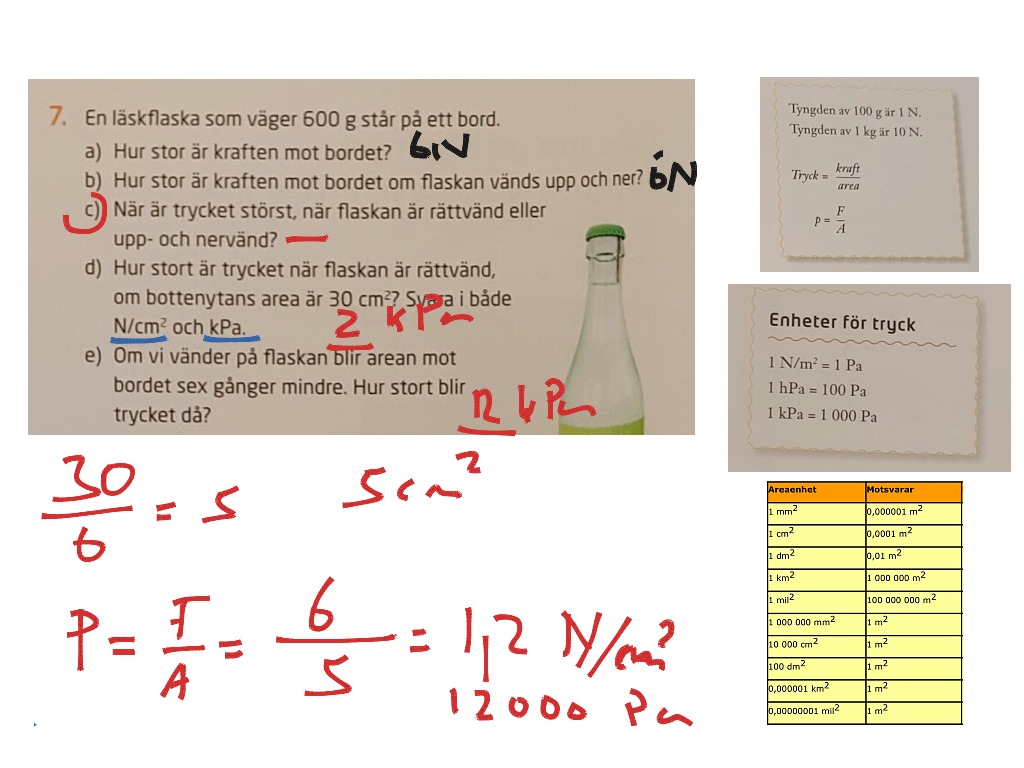 7. En läskflaska som väger 600 g står på ett bord.
a) Hur stor är kraften mot bordet? 6N
b) Hur stor är kraften mot bordet om flaskan vänds upp och ner? 6N
c) När är trycket störst, när flaskan är rättvänd eller
upp- och nervänd?
d) Hur stort är trycket när flaskan är rättvänd,
om bottenytans area är 30 cm²? Svara i både
N/cm² och kPa. 2 kPa
e) Om vi vänder på flaskan blir arean mot
bordet sex gånger mindre. Hur stort blir
trycket då? 12 kPa
30/6 = 5
5 cm²
P = F/A = 6/5 = 1,2 N/cm²
12000 Pa
Tyngden av 100 g är 1 N.
Tyngden av 1 kg är 10 N.
Tryck = kraft/area
p = F/A
Enheter för tryck
1 N/m² = 1 Pa
1 hPa = 100 Pa
1 kPa = 1 000 Pa
Areaenhet Motsvarar
1 mm² 0,000001 m²
1 cm² 0,0001 m²
1 dm² 0,01 m²
1 km² 1 000 000 m²
1 mil² 100 000 000 m²
1 000 000 mm² 1 m²
10 000 cm² 1 m²
100 dm² 1 m²
0,000001 km² 1 m²
0,00000001 mil² 1 m²